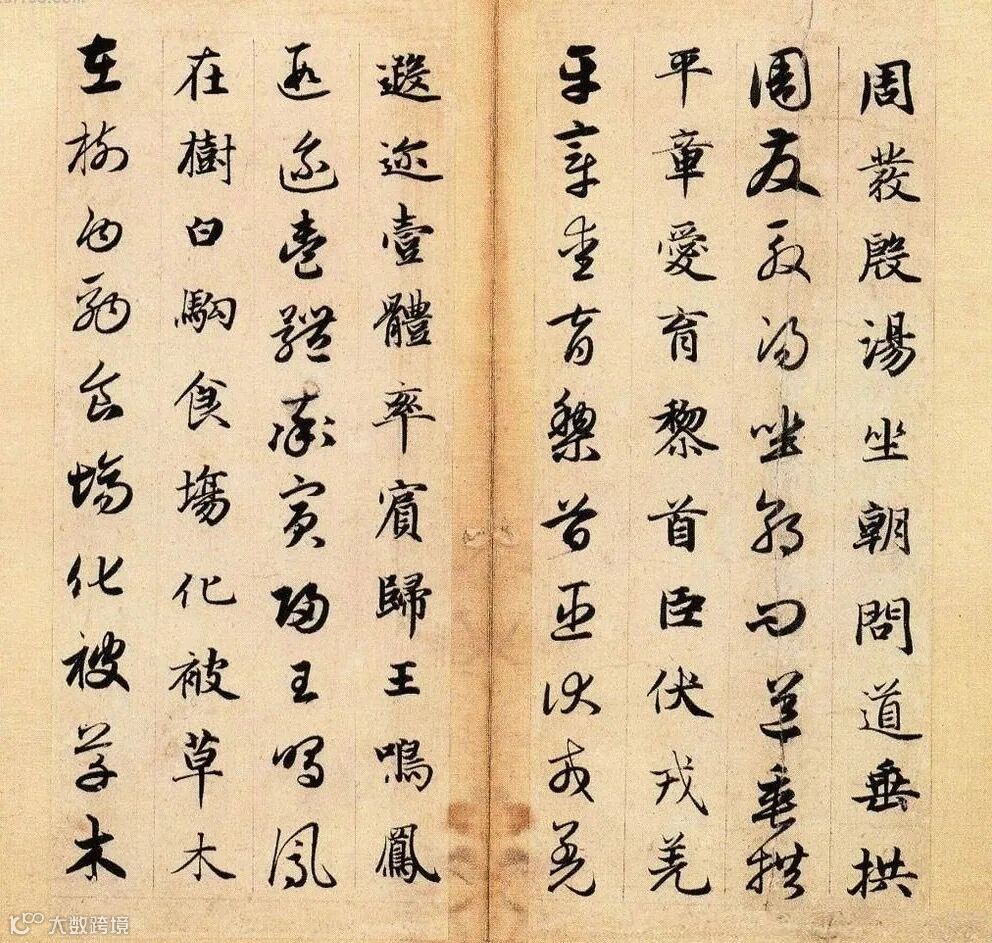 周發殷湯坐朝問道垂拱
周發殷湯坐朝問道垂拱
平章愛育黎首臣伏戎羌
平章愛育黎首臣伏戎羌
遐迩壹體率賓歸王鳴鳳
遐迩壹體率賓歸王鳴鳳
在樹白駒食場化被草木
在樹白駒食場化被草木
大数跨境